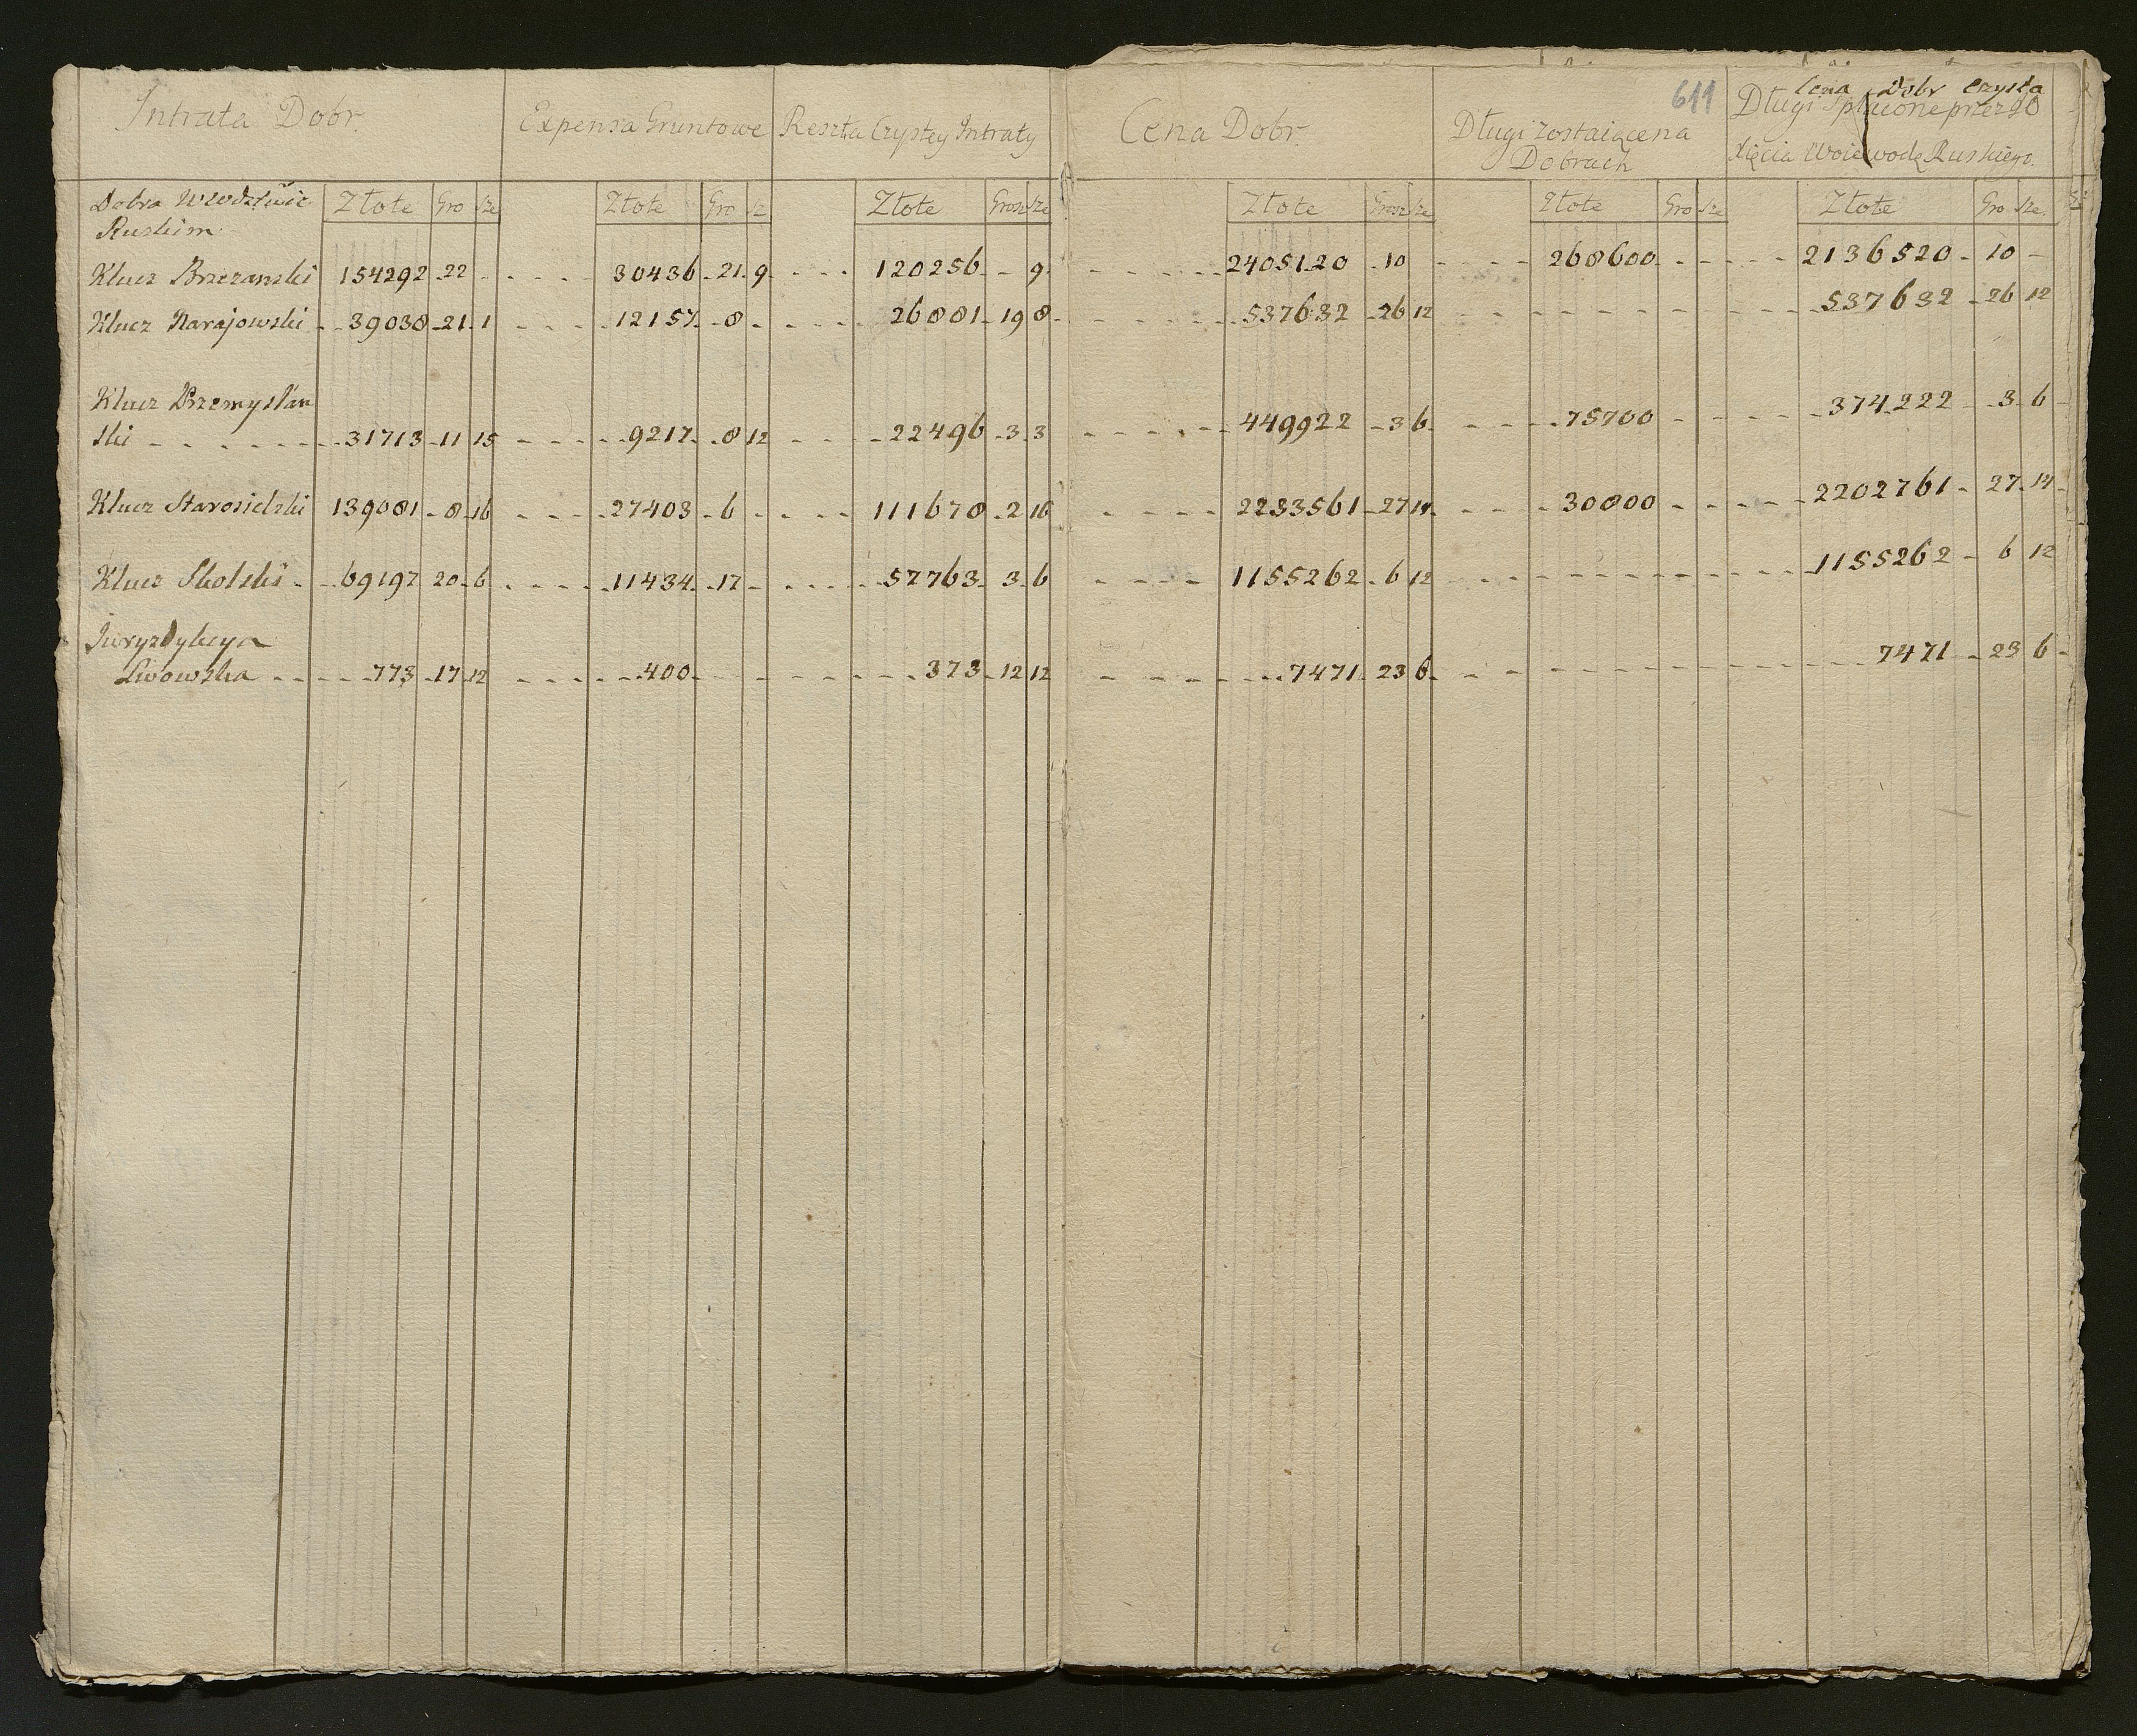 611
Intrata Dobr. Expensa Gruntowe Reszta Czystey Intraty Cena Dobr. Długi zostaiące na Cena Dobr czysta
Dobrach Długi Spłacone przez JO
Xięcia Woiewodę Ruskiego.
Dobra w Wodztwie Złote Gro sze Złote Gro sz Złote Grosz sze Złote Grosz sze Złote Gro sze Złote Gro sze
Ruskim
Klucz Brzezanski 154292 22 30436 21 9 120256 9 2405120 10 268600 2136520 10
Klucz Narajowski 39038 21 1 12157 8 26881 19 8 537632 26 12 537632 26 12
Klucz Przemyslan
ski 31713 11 15 9217 8 12 22496 3 3 449922 3 6 75700 374222 3 6
Klucz Starosielski 139081 8 16 27403 6 111678 2 16 2233561 27 14 30800 2202761 27 14
Klucz Skolski 69197 20 6 11434 17 57763 3 6 1155262 6 12 1155262 6 12
Juryzdykcya
Lwowska 773 17 12 400 373 12 12 7471 23 6 7471 23 6